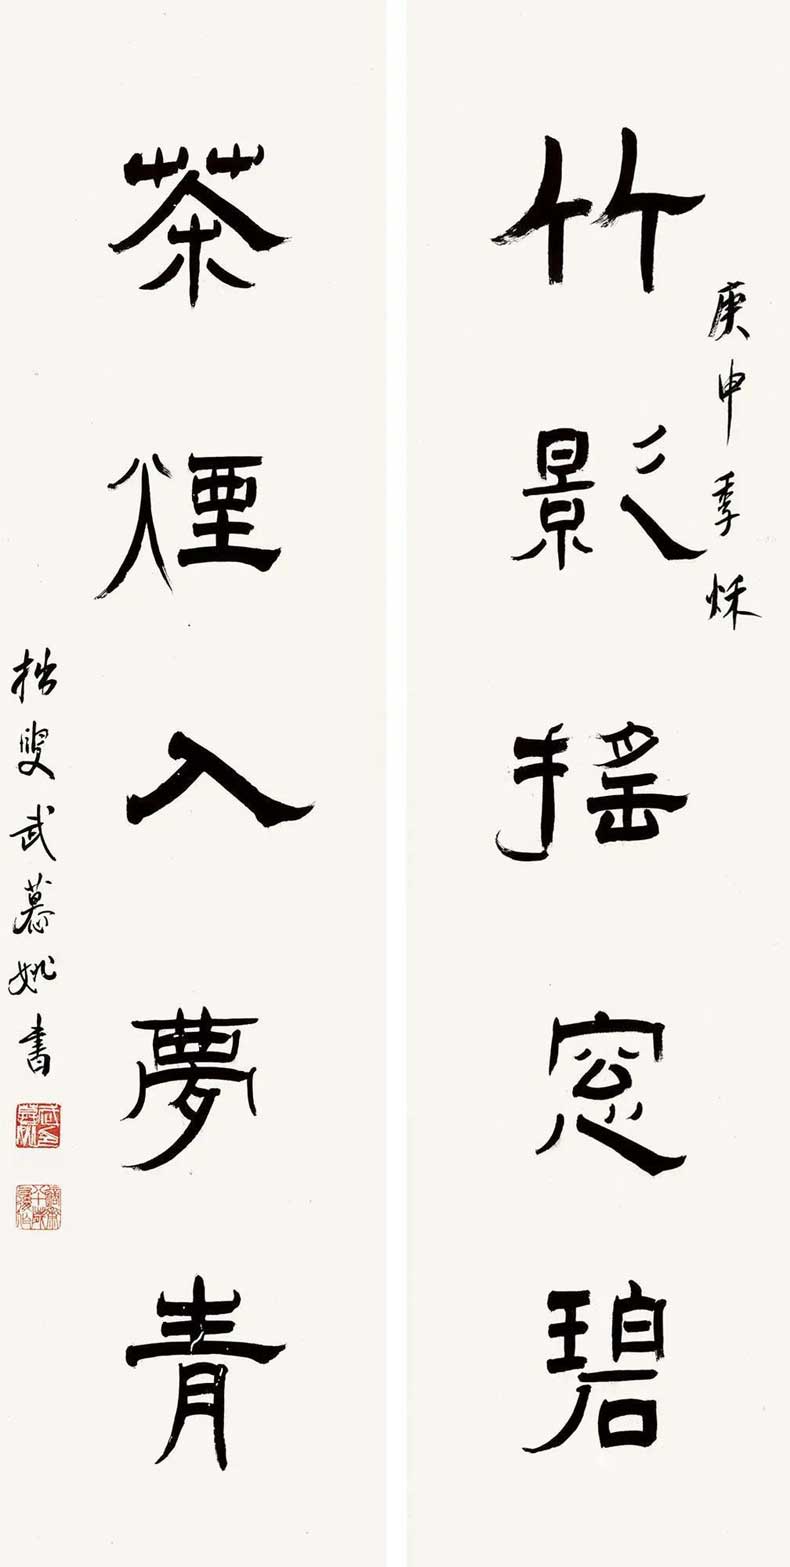 竹影摇窓碧
庚申季烁
茶煙入夢青
拙叟武慕姚書